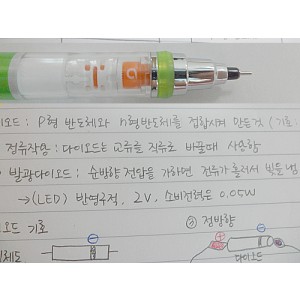 이오드 : P형 반도체와 n형반도체를 접합시켜 만든것 (기호:
정류작용 : 다이오드는 교류를 직류로 바꿀때 사용함
발광다이오드 : 순방향 전압을 가하면 전류가 흘러서 빛을 냄
→(LED) 반영구적, 2V, 소비전력은 0.05W
오드 기호
② 정방향
⊖
⊕
⊖
다이오드